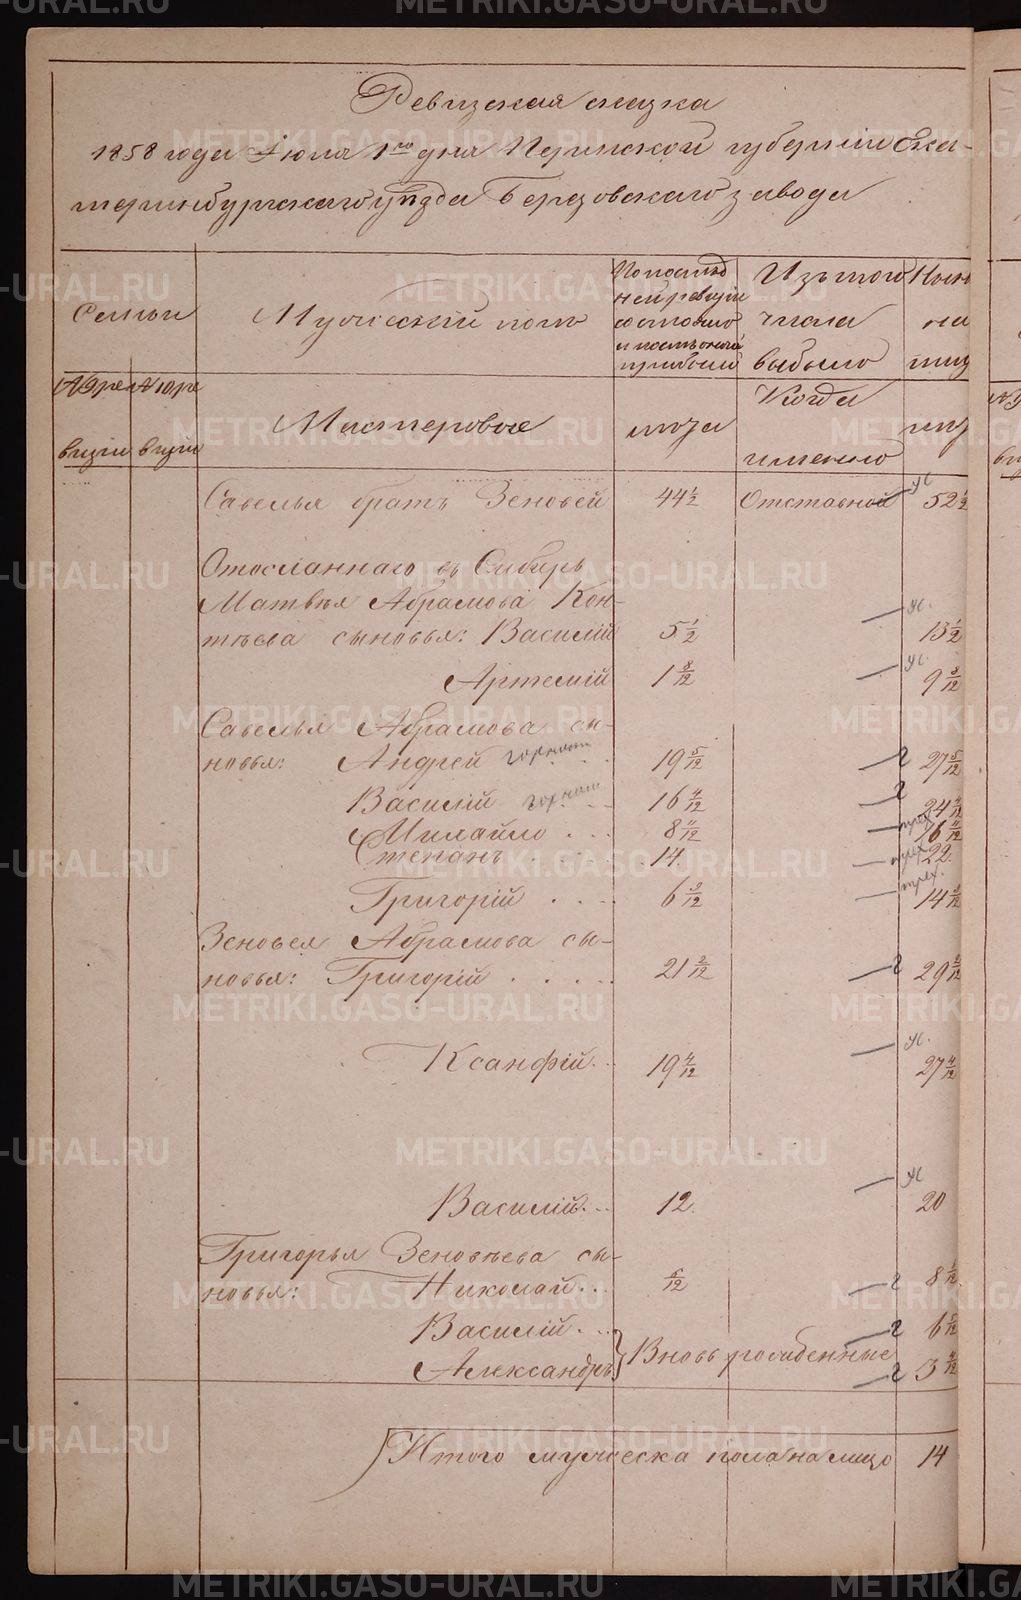 Ревизская сказка
1858 года Июля 1го дня Пермской губернiи Ека-
теринбургскаго уѣзда Березовскаго завода
Семьи
Мужескiй полъ
По послѣд
ней ревизiи
состояло
и послѣ оной
прибыло
Изъ того
числа
выбыло
Нынѣ
на
лицо
№ 9 ре
визiи
№ 10 ре
визiи
Мастеровые
лѣта
Когда
именно
лѣт
Савелья братъ Зеновей 44 1/2 Отставной 52 1/2
Отосланнаго въ Сибирь
Матвѣя Абрамова Кон-
тѣева сыновья: Василiй 5 1/2 13 1/2
Артемiй 1 8/12 9 8/12
Савелья Абрамова сы-
новья: Андрей 19 5/12 г 27 5/12
Василiй 16 4/12 г 24 4/12
Михайло 8 11/12 16 11/12
Степанъ 14. 22.
Григорiй 6 9/12 14 9/12
Зеновея Абрамова сы-
новья: Григорiй 21 2/12 г 29 2/12
Ксанфiй 19 4/12 27 4/12
Василiй 12. 20
Григорья Зеновѣева сы-
новья: Николай 6/12 г 8 6/12
Василiй г 6 5/12
Александръ Вновь рожденные г 3 4/12
Итого мужеска пола на лицо 14
METRIKI.GASO-URAL.RU